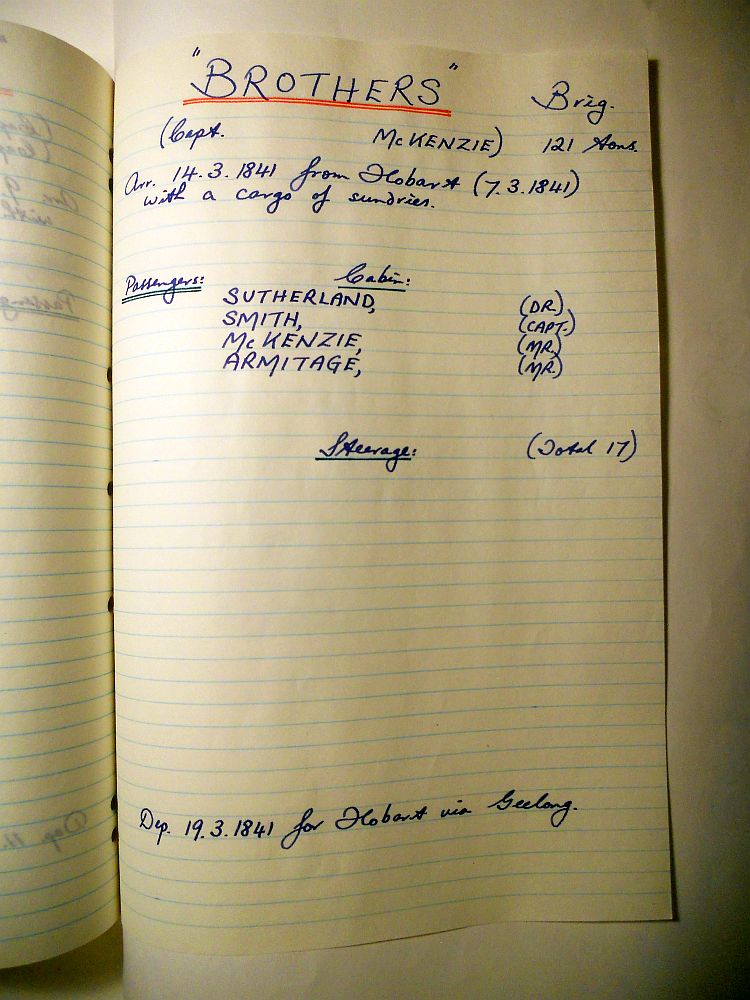 "BROTHERS" Brig.
(Capt. McKENZIE) 121 tons.
Arr. 14.3.1841 from Hobart (7.3.1841)
with a cargo of sundries.
Passengers: Cabin:
SUTHERLAND, (DR.)
SMITH, (CAPT.)
McKENZIE, (MR.)
ARMITAGE, (MR.)
Steerage: (Total 17)
Dep. 19.3.1841 for Hobart via Geelong.